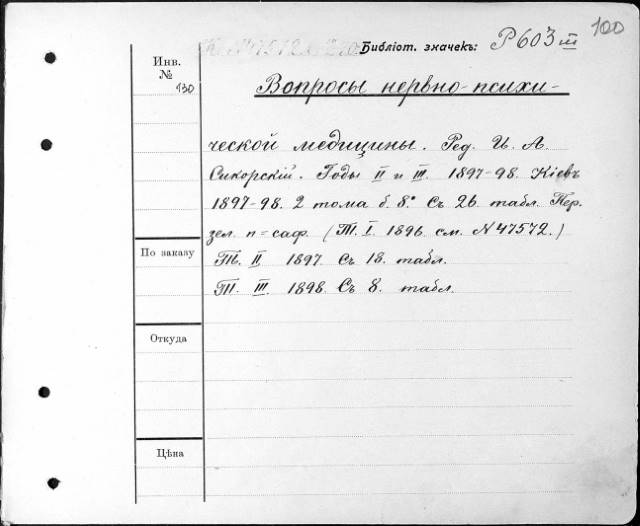 Библіот. значекъ: P603 III 100
Инв.
№
130
Вопросы нервно-психи-
ческой медицины. Ред. И. А.
Сикорскій. Годы II и III. 1897-98. Кіевъ
1897-98. 2 тома б. 8.° Съ 26. табл. Пер.
зел. п=саф. (Т. I. 1896. см. N47572.)
По заказу
Т. II 1897. Съ 18. табл.
Т. III. 1898. Съ 8. табл.
Откуда
Цѣна